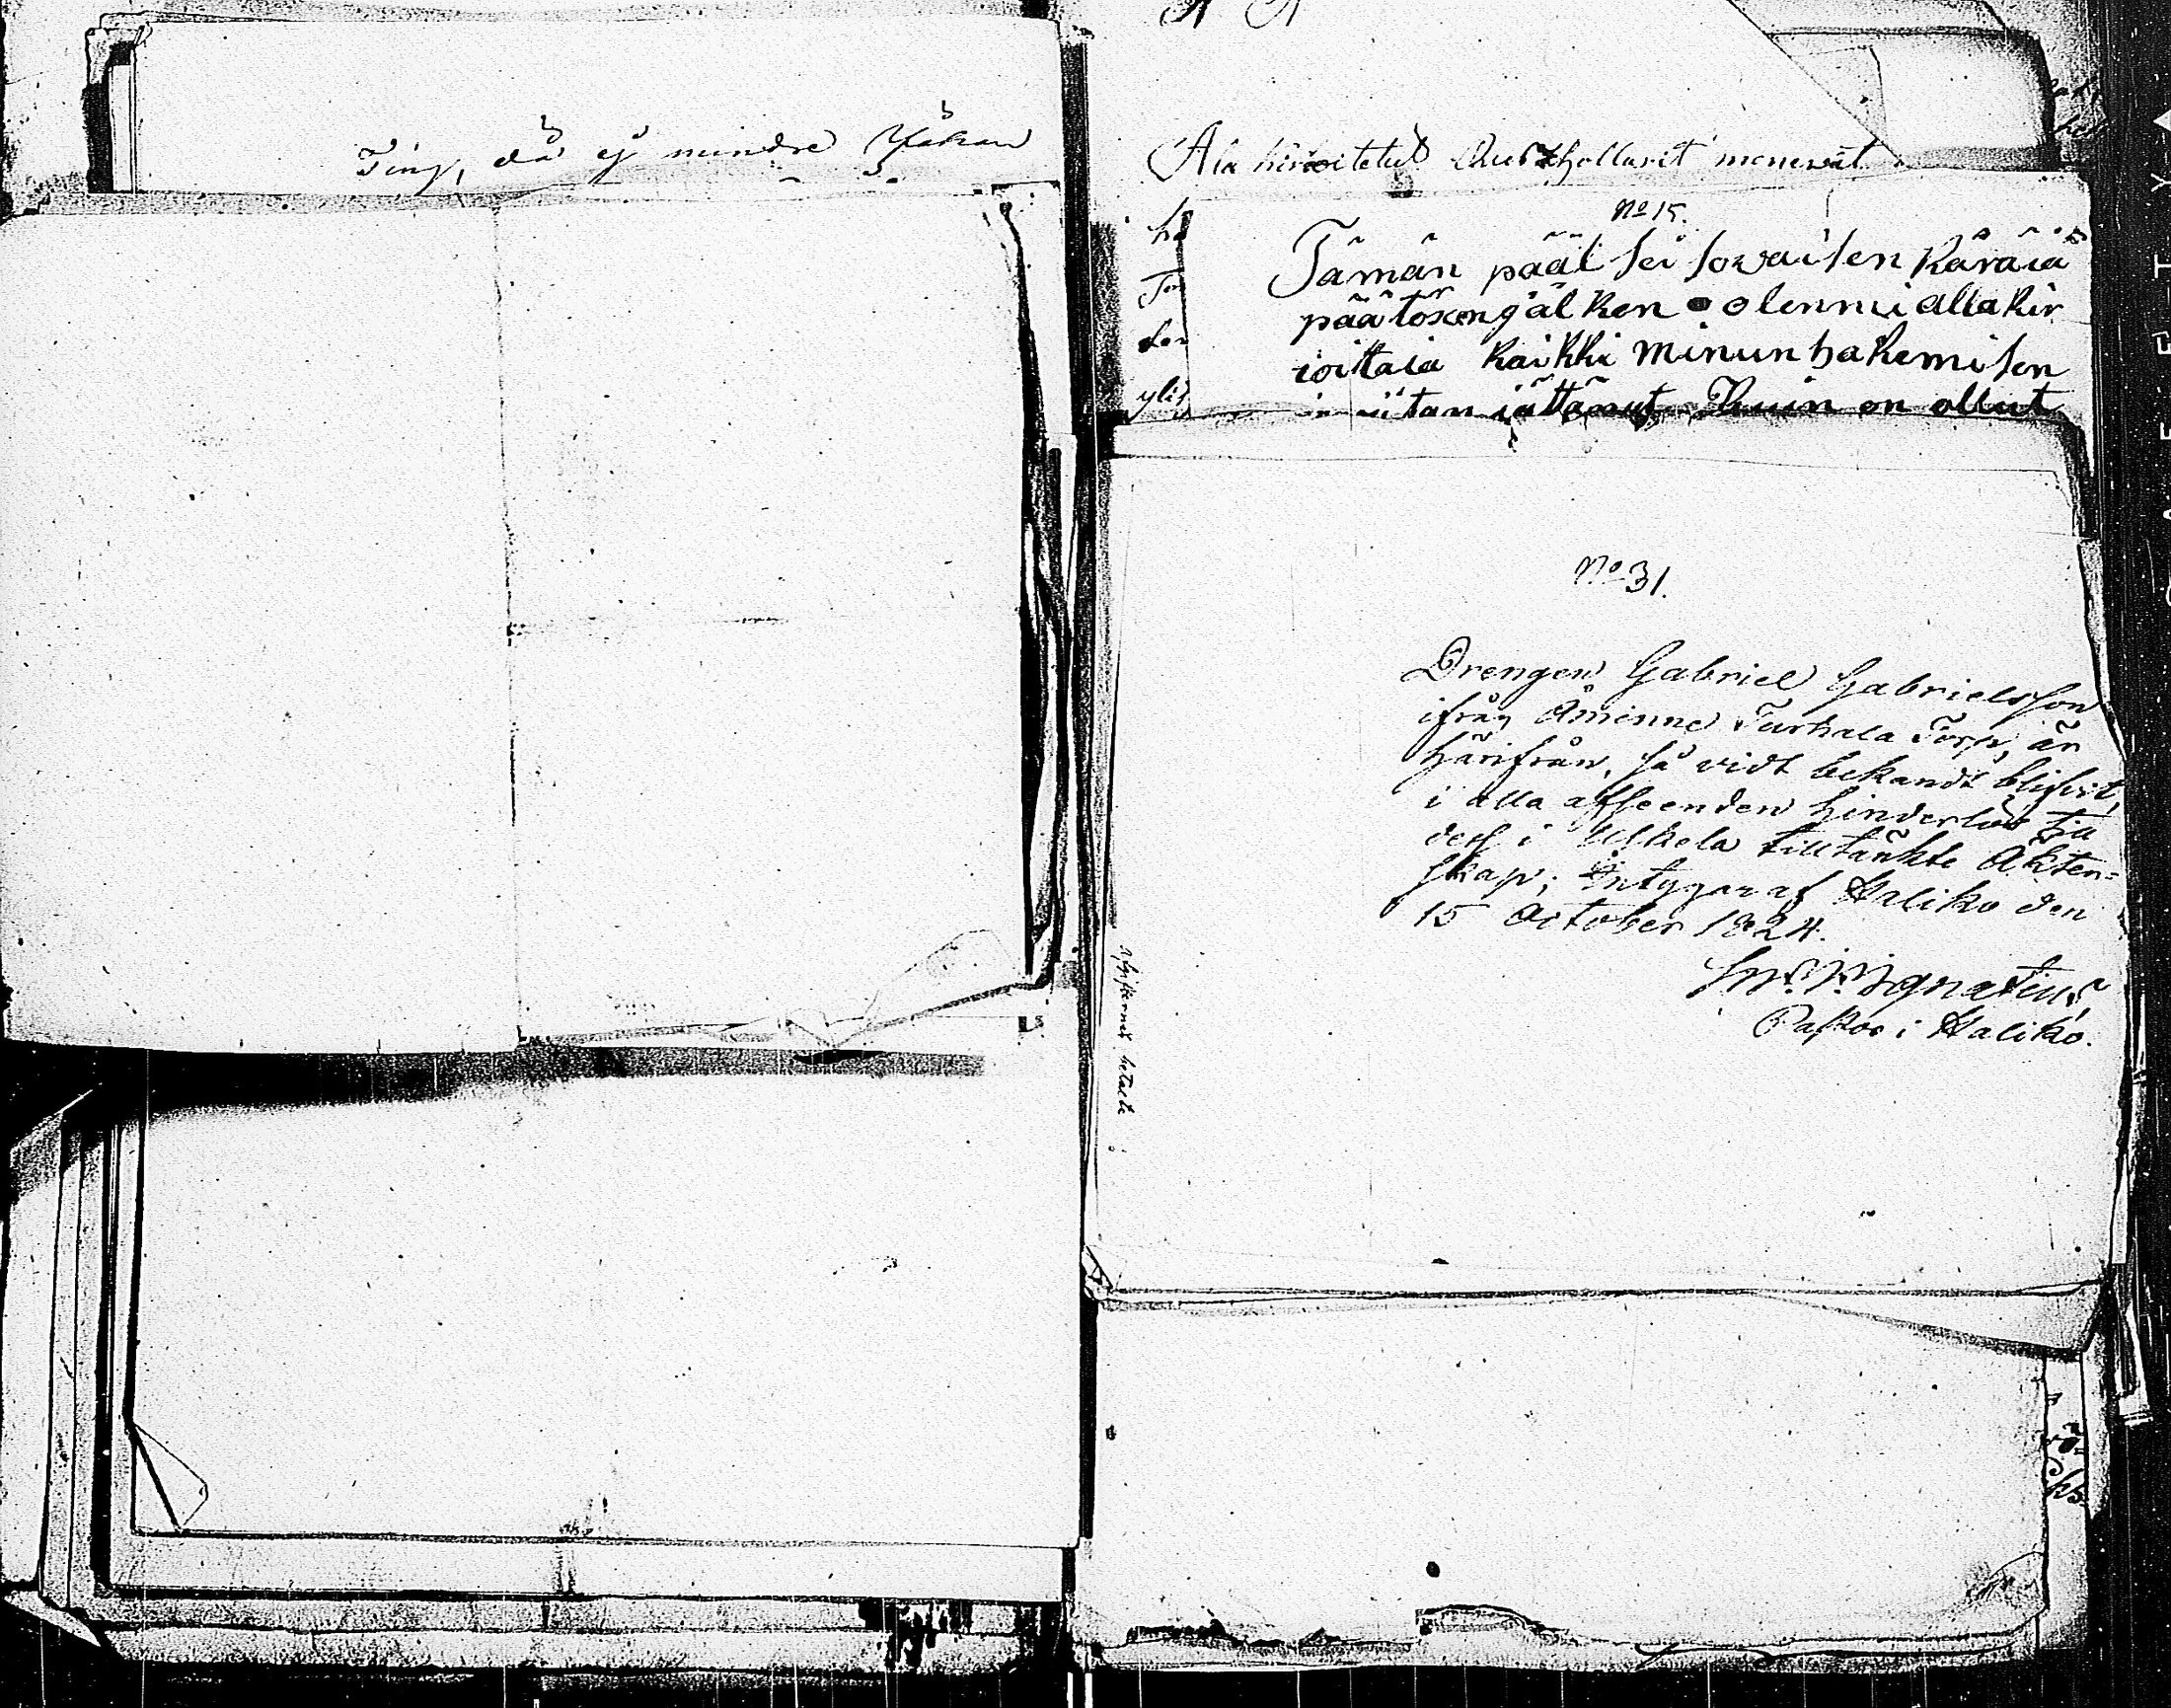 Ting, då ej mindre
Ala kirioitetut monewat
No 15.
Tämän pääl sei sowaisen käräiä
päätöxen jälken olenmi allakir
ioittaia kaikki minun hakemisen
jättänut Kuin on ollut
No 31.
Drengen Gabriel Gabrielsson
ifrån Åminne Turhala Torp, är
härifrån, så vidt bekandt blifvit,
i alla afseenden hinderlös till
dess i Uskela tilltänkte Äkten-
skap; Intygar af Haliko den
15 October 1824.
Ignatius
Pastor i Haliko.